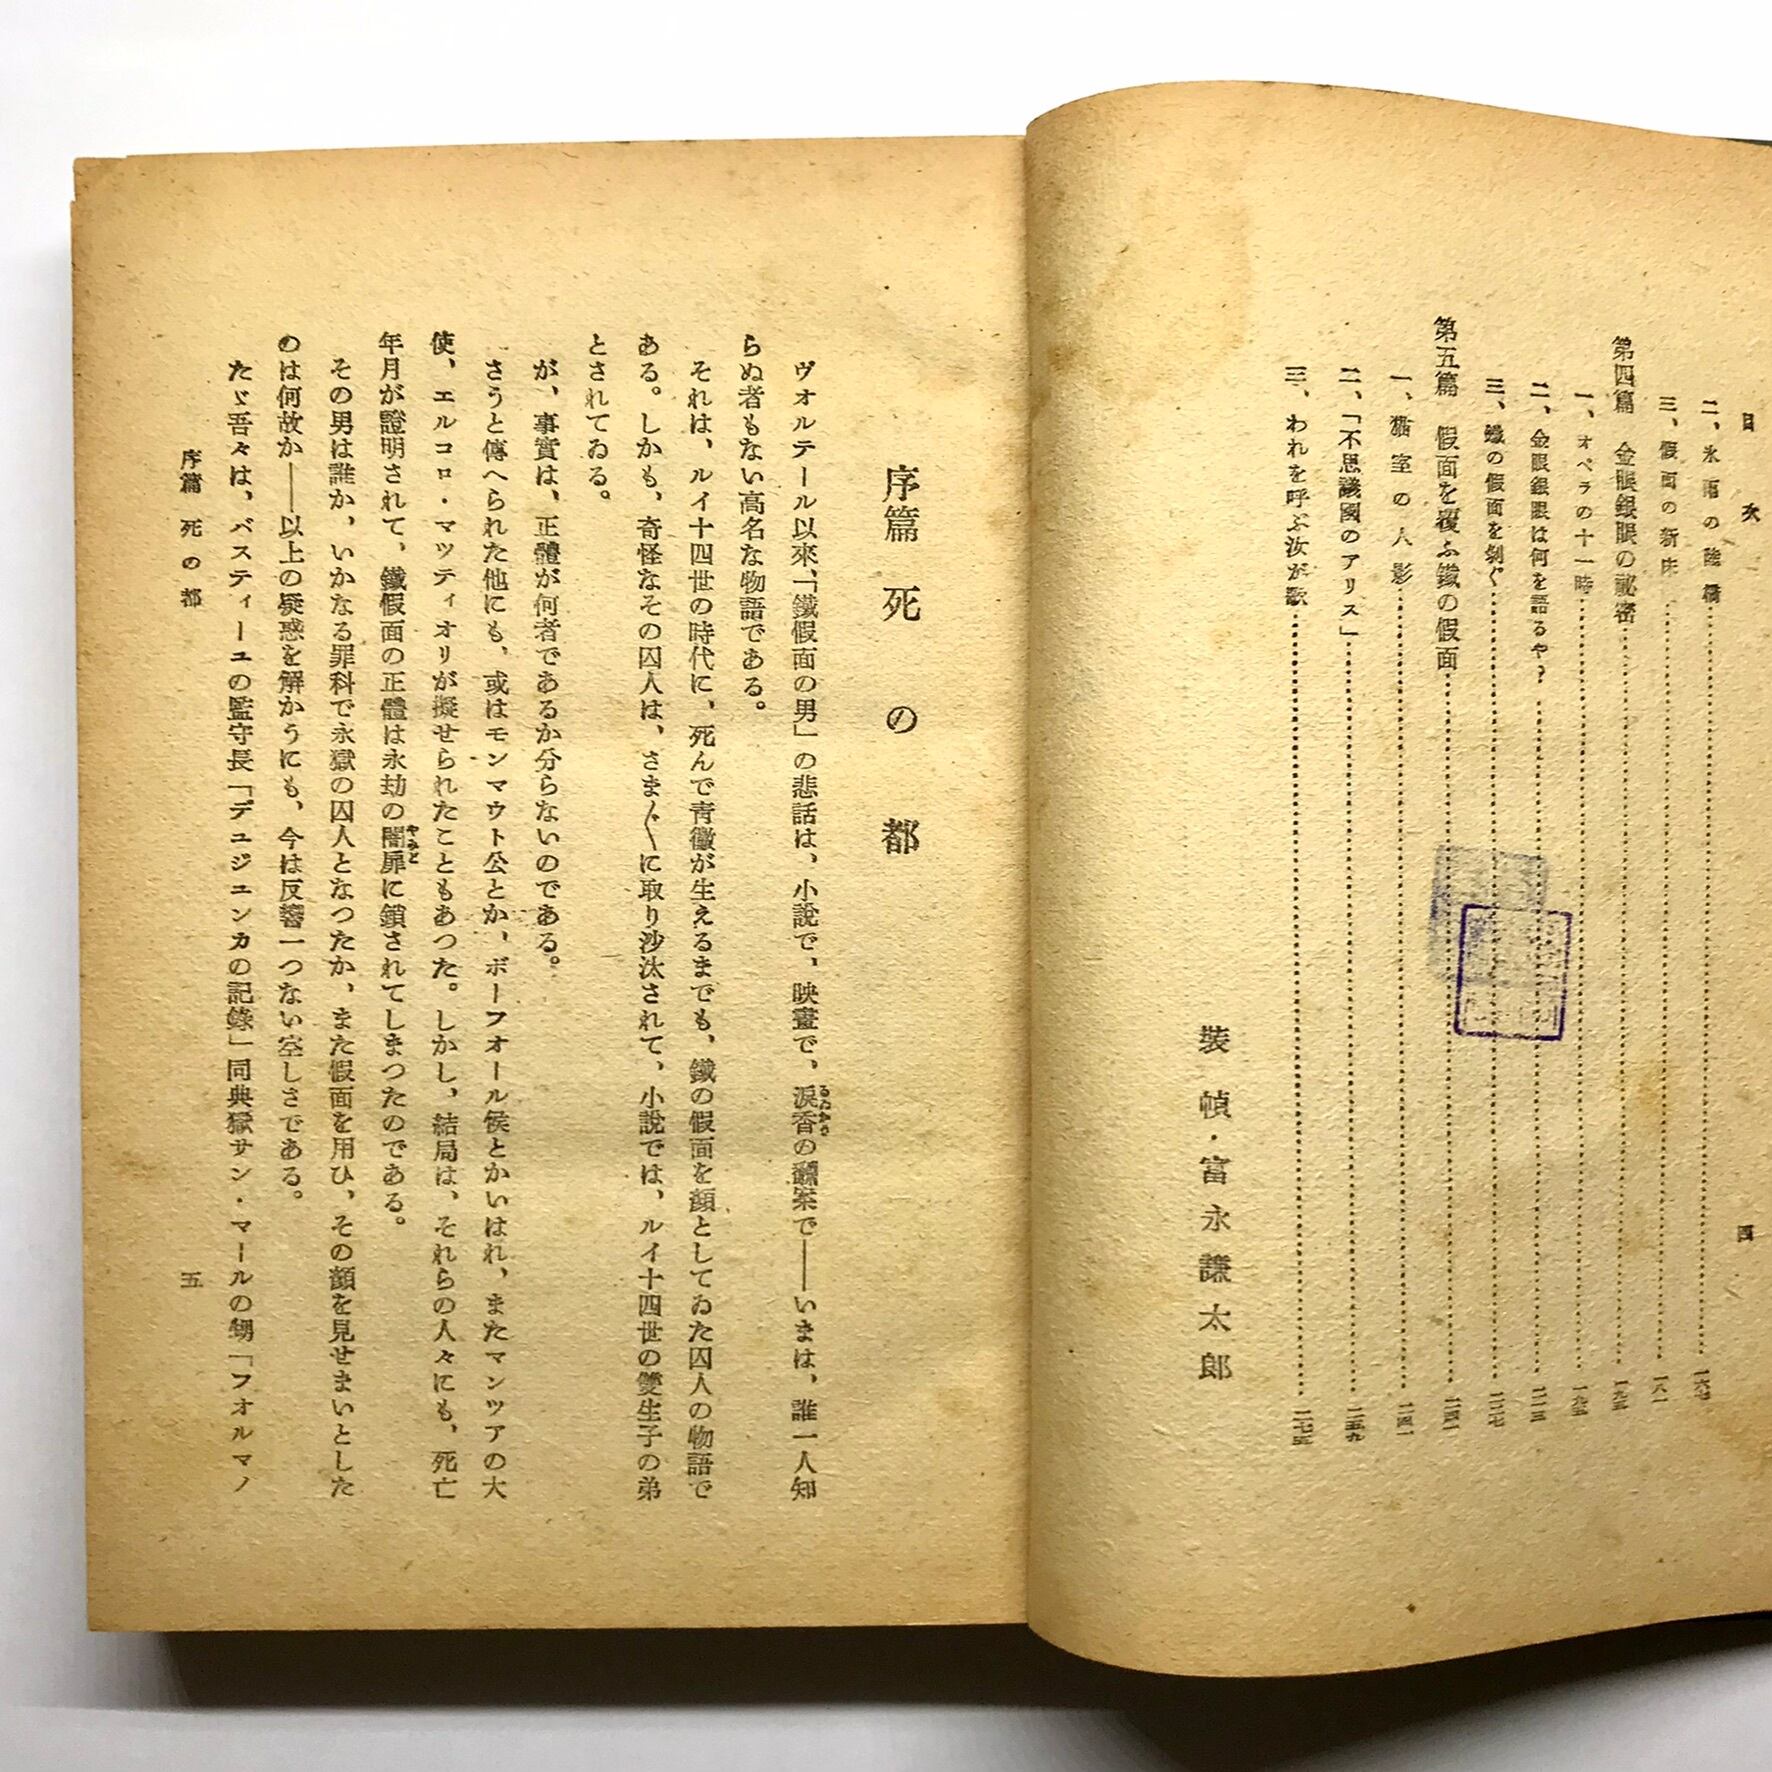 目次
四
二、氷雨の陸橋……一六七
三、假面の新床……一八一
第四篇 金眼銀眼の祕密……一九五
一、オペラの十一時……一九五
二、金眼銀眼は何を語るや?……二一三
三、鐵の假面を剝ぐ……二二七
第五篇 假面を覆ふ鐵の假面……二四一
一、猫室の人影……二四一
二、「不思議國のアリス」……二五九
三、われを呼ぶ汝が歌……二七五
裝幀・富永謙太郎
序篇 死の都
ヴォルテール以來、「鐵假面の男」の悲話は、小說で、映畫で、淚香の飜案で――いまは、誰一人知
るゐかう
らぬ者もない高名な物語である。
それは、ルイ十四世の時代に、死んで靑黴が生えるまでも、鐵の假面を顏としてゐた囚人の物語で
ある。しかも、奇怪なその囚人は、さま〴〵に取り沙汰されて、小說では、ルイ十四世の雙生子の弟
とされてゐる。
が、事實は、正體が何者であるか分らないのである。
さうと傳へられた他にも、或はモンマウト公とか、ボーフオール侯とかいはれ、またマンツアの大
使、エルコロ・マツティオリが擬せられたこともあつた。しかし、結局は、それらの人々にも、死亡
年月が證明されて、鐵假面の正體は永劫の闇扉に鎖されてしまつたのである。
やみど
その男は誰か、いかなる罪科で永獄の囚人となつたか、また假面を用ひ、その顏を見せまいとした
のは何故か――以上の疑惑を解かうにも、今は反響一つない空しさである。
たゞ吾々は、バスティーユの監守長「デュジュンカの記錄」同典獄サン・マールの甥「フオルマノ
序篇 死の都
五